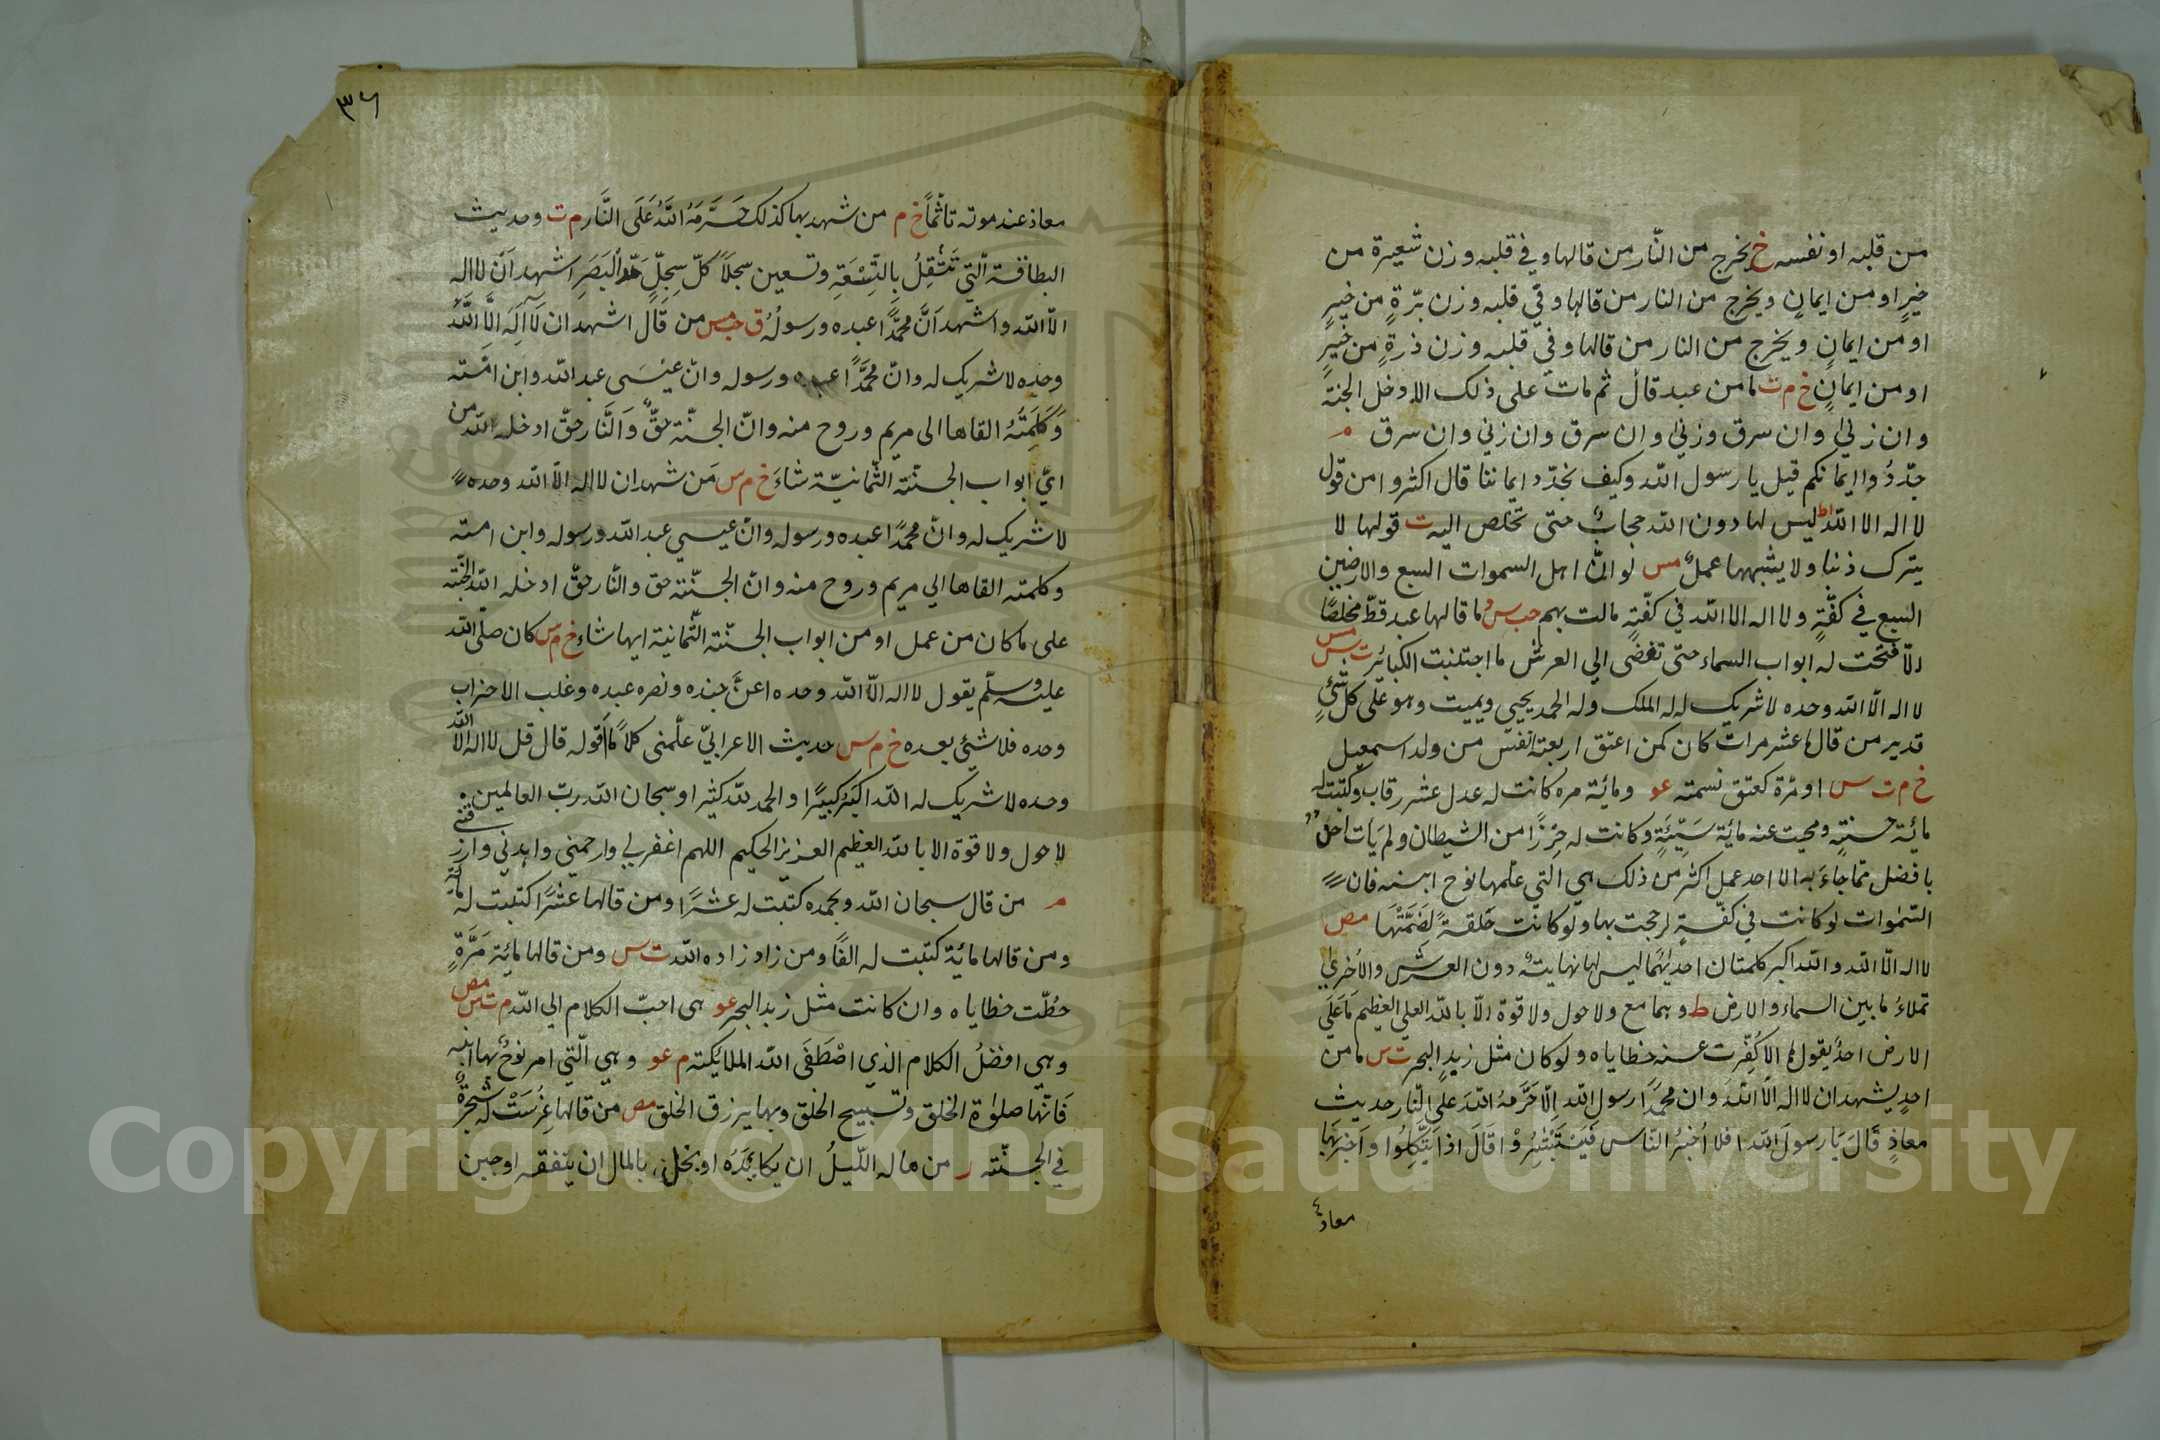 من قلبه او نفسه خ يخرج من النّار من قالها وفي قلبه وزن شعيرة من
خيرٍ او من ايمانٍ ويخرج من النار من قالها وفي قلبه وزن برّةٍ من خيرٍ
او من ايمانٍ ويخرج من النار من قالها وفي قلبه وزن ذرةٍ من خيرٍ
او من ايمانٍ خ م ت ما من عبد قال ثم مات على ذلك الا دخل الجنة
وان زنىٰ وان سرق وزنىٰ وان سرق وان زنىٰ وان سرق م
جدّدُوا ايمانكم قيل يا رسول الله وكيف نجدّد ايماننا قال اكثروا من قول
لا اله الا الله اط ليس لها دون الله حجابٌ حتى تخلص اليه ت قولها لا
يترك ذنبا ولا يشبهها عملٌ مس لو انّ اهل السموات السبع والارضين
السبع في كفّةٍ ولا اله الا الله في كفّةٍ مالت بهم حب س ما قالها عبد قطّ مخلصًا
الّا فتحت له ابواب السماء حتى تفضى الي العرش ما اجتنبت الكبائر ت س مس
لا اله الّا الله وحده لا شريك له له الملك وله الحمد يحيي ويميت وهو على كل شئٍ
قدير من قالها عشر مرات كان كمن اعتق اربعة انفس من ولد اسمعيل
خ م ت س او مرّة كعتق نسمته عو ومائة مره كانت له عدل عشر رقاب وكتبت له
مائة حسنةٍ ومحيت عنه مائة سَيِّئَةٍ وكانت له حِرْزًا من الشيطان ولم يَأت احد
بافضل ممّا جَاءَ به الا احد عمل اكثر من ذلك هي التي علّمها نوح ابنه فان
السّمٰوات لو كانت في كفّةٍ لرجحت بها ولو كانت حَلقةً لَضَمَّتْهَا مص
لا اله الّا الله والله اكبر كلمتان احديٰهُما ليس لها نهايةٌ دون العرش والاُخريٰ
تملاءُ ما بين السماء والارض ط وهما مع ولا حول ولا قوة الّا بالله العلي العظيم مَا عَلَي
الارض احدٌ يقولها الا كُفِّرت عنه خطاياه ولو كان مثل زبد البحر ت س ما من
احدٍ يشهد ان لا اله الّا الله وان محمّدًا رسول الله الّا حَرَّمَهُ اللهَ علي النّار حديث
معاذٍ قَالَ يَا رسولَ الله افلا اُخبرُ النّاس فَيَسْتَبْشِرُوْا قَالَ اذا يَتَّكِلُوا واَخبَرَ بَهَا
معاذ
٣٦
معاذ عند موته تاثّمًا خ م من شهد بها كذلك حَرَّمَهُ اللّهُ عَلَى النَّار م ت وحديث
البطاقة الّتي تَثْقُلُ بِالتِّسْعَةِ وتسعين سجلّاً كلّ سِجلٍّ مَدّ الْبَصَرِ اشهد اَنْ لا اله
الّا الله واشهد اَنَّ محمّدًا عبده ورسولُهُ ق حب مس من قَالَ اشهد ان لَآ اِلَهَ اِلَّا اللّٰهُ
وحده لا شريك له وانّ محمّدًا عبده ورسوله وانّ عيسَى عبد الله وابن امَته
وَكَلِمَتُهُ القاها الى مريم وروح منه وانّ الجنّة حقٌّ وَالنَّار حقّ ادخله الله من
ايّ ابواب الجنّة الثّمانيّة شاءَ خ م س مَن شهد ان لا اله الّا الله وحده
لا شريك له وانّ محمّدًا عبده ورسوله وانّ عيسي عبد الله ورسوله وابن امته
وكلمته القاها الي مريم وروح منه وانّ الجنّة حق والنّار حقّ ادخله الله الجنّة
على ما كان من عمل او من ابواب الجنّة الثّمانية ايها شاء خ م س كان صلّى الله
عليه وسلّم يقول لا اله الّا الله وحده اعزَّ جنده ونصره عبده وغلب الاحزاب
وحده فلا شئ بعده خ م س حديث الاعرابيّ علّمني كلاًمًا اَقوله قال قل لا اله الّا الله
وحده لا شريك له الله اكبَرُ كبيرًا والحمد للّٰه كثيرا وسبحان الله ربّ العالمين
لا حول ولا قوة الا بالله العظيم العزيز الحكيم اللهم اغفر لي وارحمني واهدني وارزقني
م من قال سبحان الله وبحمده كتبت له عشرًا ومن قالها عشرًا كتبت له مائة
ومن قالها مائة كتبت له الفًا ومن زاد زاده الله ت س ومن قالها مائة مَرَّةٍ
حُطّت خطاياه وان كانت مثل زبد البحر عو هي احبّ الكلام الي الله م ت س مص
وهي افضلُ الكلام الذي اصْطَفَى الله الملائكته م عو وهي الّتي امر نوحٌ بها ابنه
فَانّها صلوٰة الخلق وتسبيح الخلق وبها يرزق الخلق مص من قالها غُرِسَتْ له شجرَةٌ
في الجنّته ر من هاله اللّيلُ ان يكابَدَهُ او بخل بالمال ان ينفقه او جبن